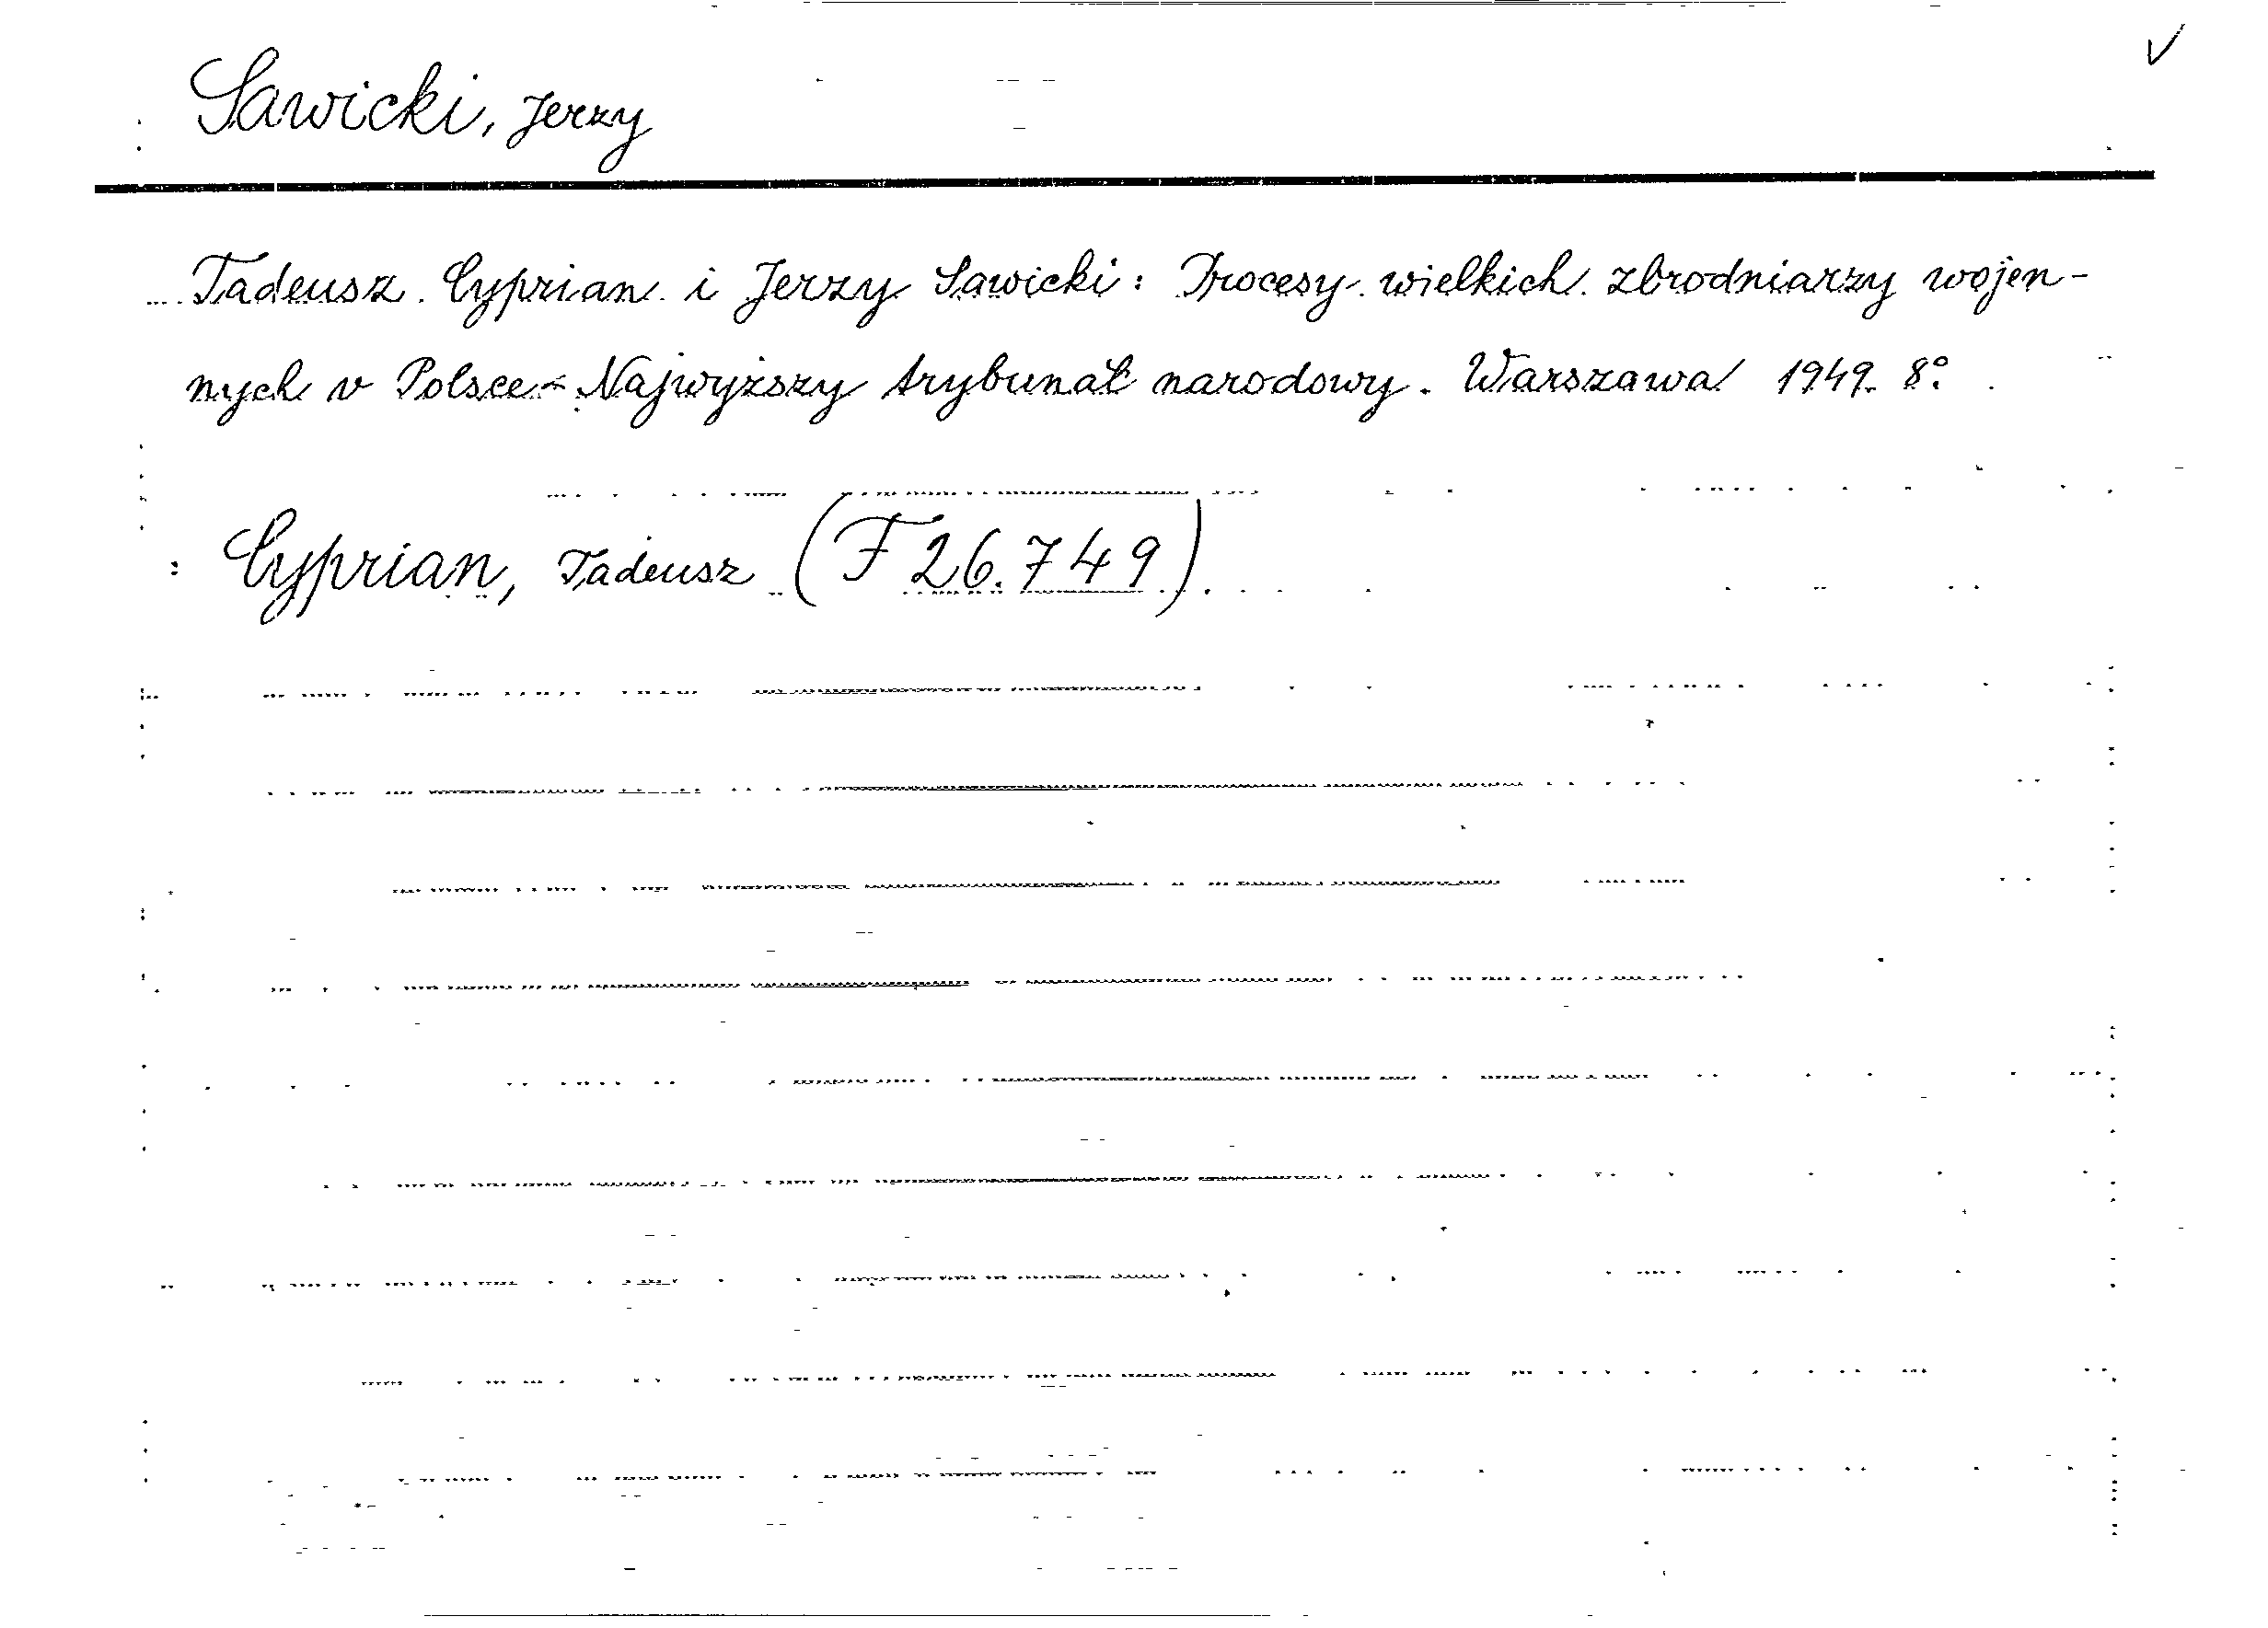 Sawicki, Jerzy
Tadeusz Cyprian i Jerzy Sawicki: Procesy wielkich zbrodniarzy wojen-
nych v Polsce - Najwyższy trybunał narodowy. Warszawa 1949. 8°.
Cyprian, Tadeusz (F 26.749).